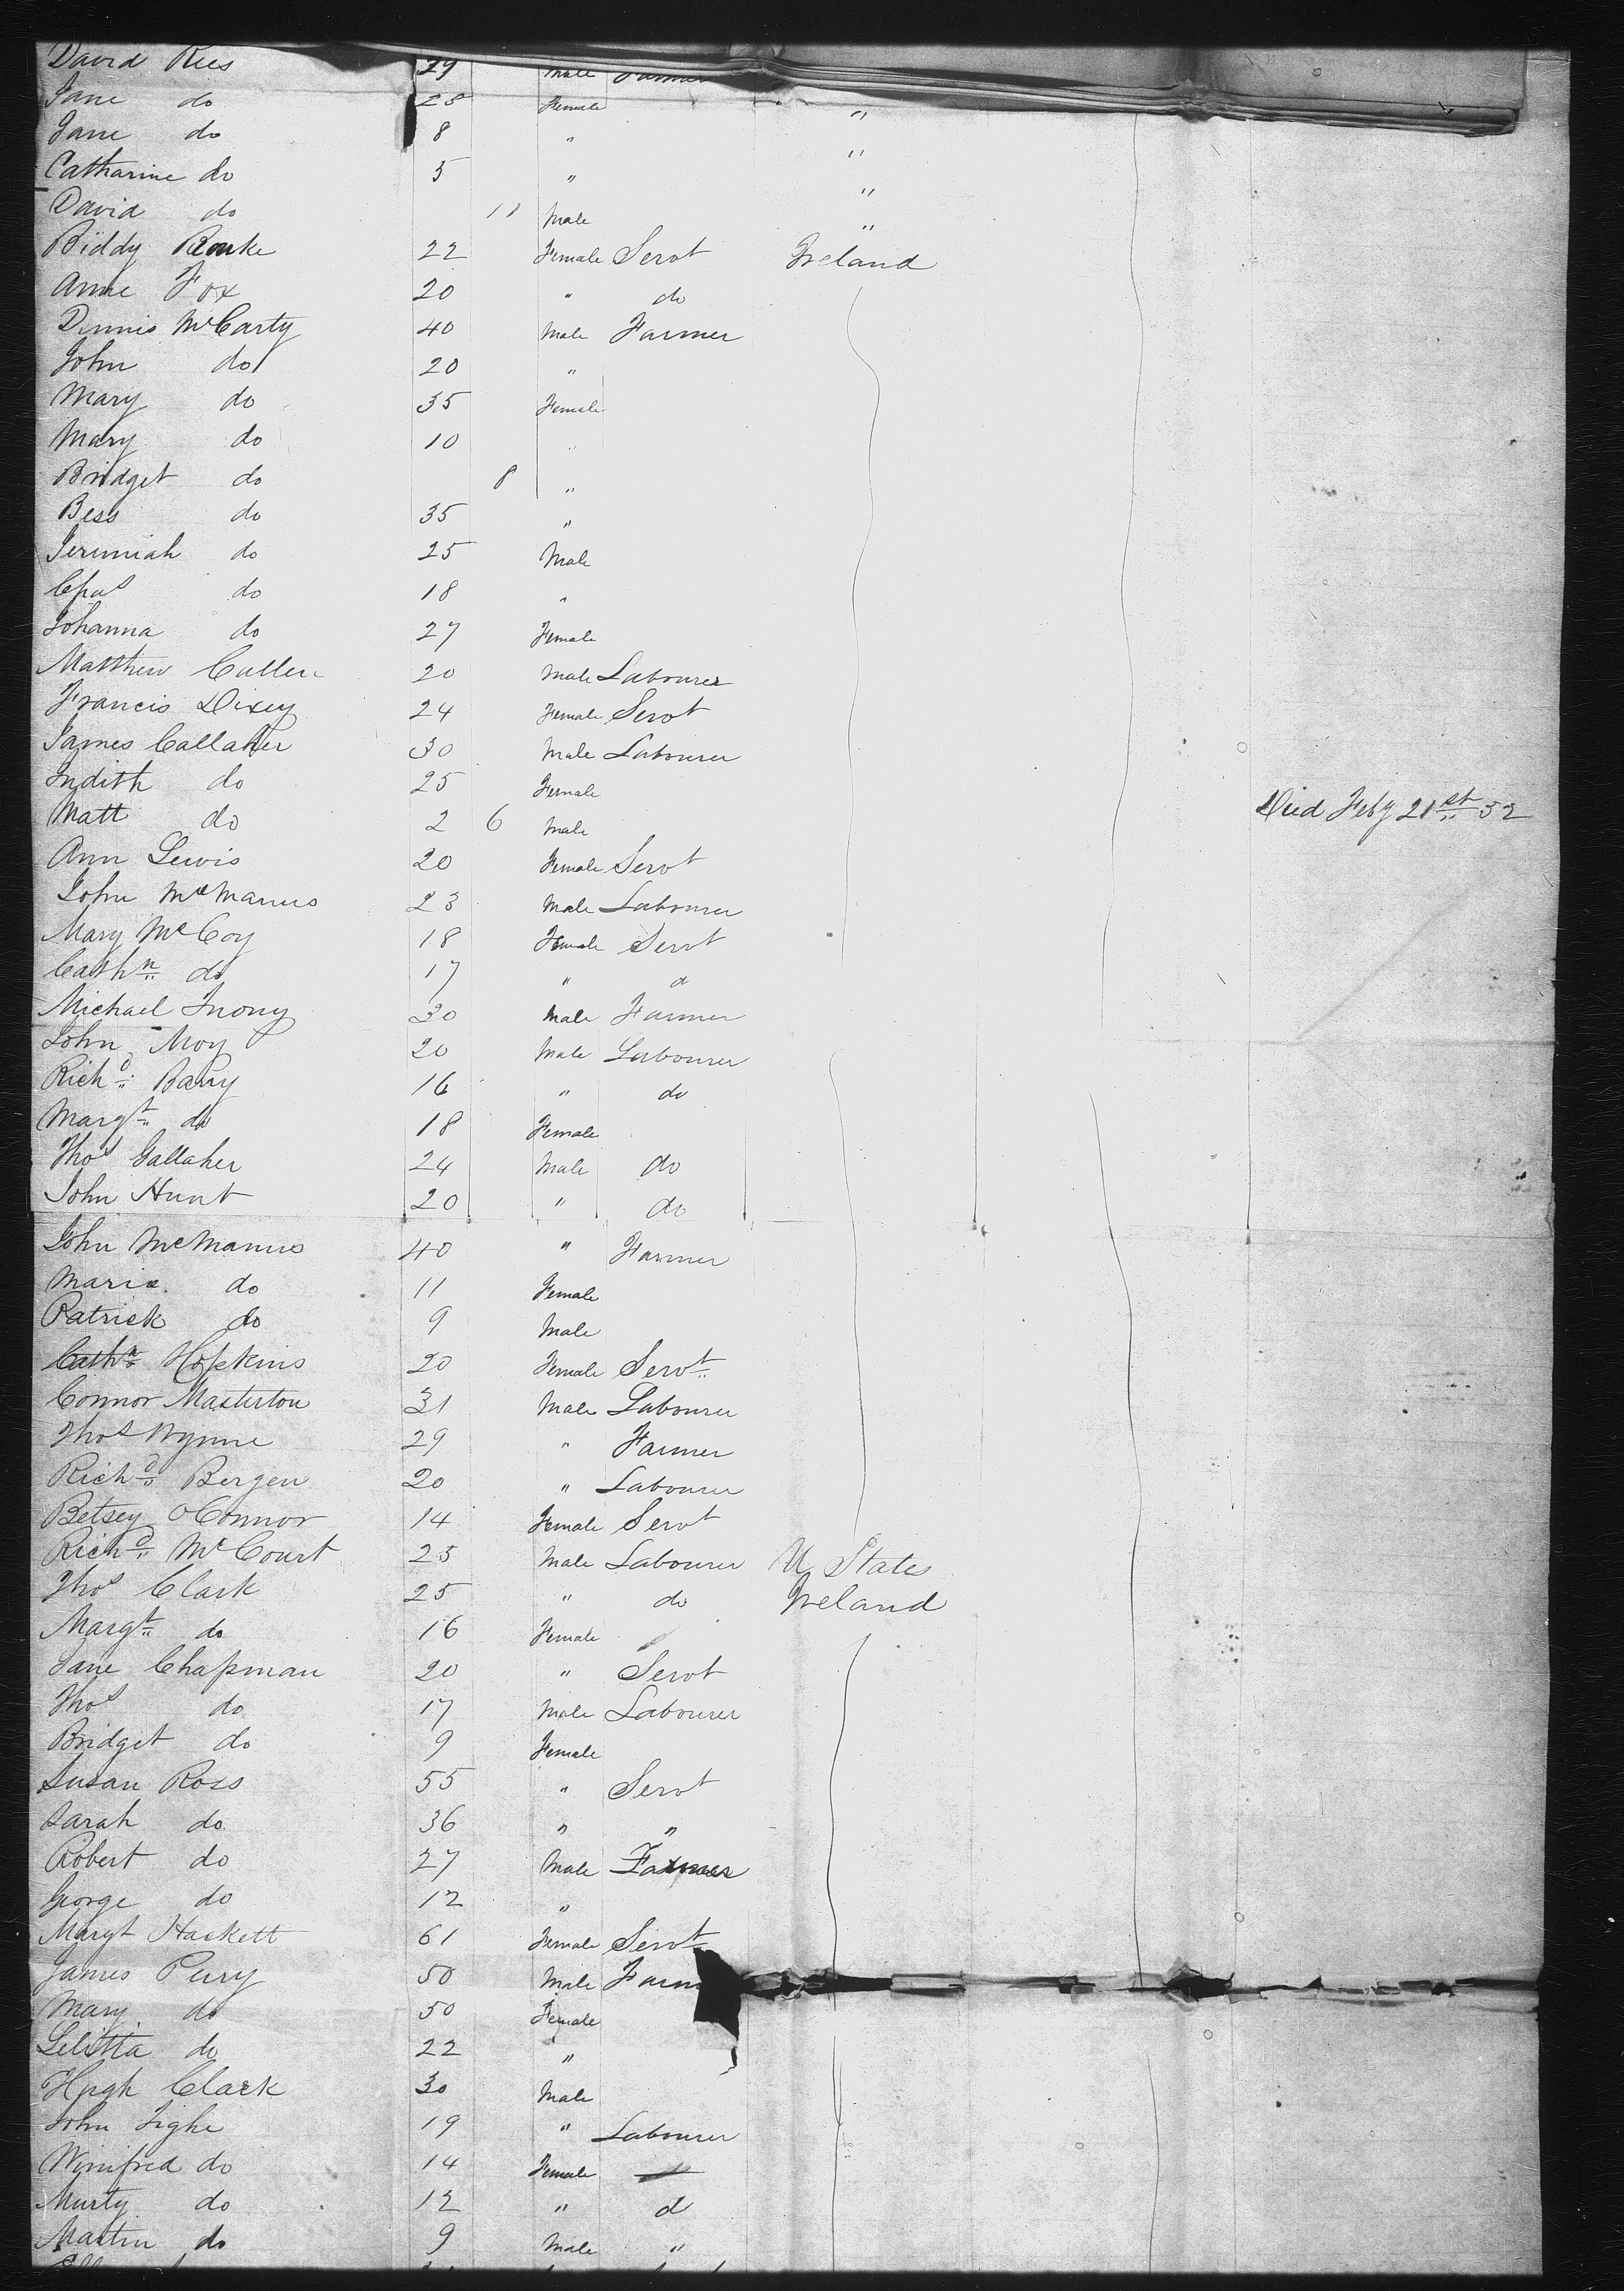 David Rees 29 Male Farmer
Jane do 28 Female "
Jane do 8 " "
Catharine do 5 " "
David do 11 Male "
Biddy Rourke 22 Female Servt Ireland
Anne Fox 20 " do
Dennis McCarty 40 Male Farmer
John do 20 "
Mary do 35 Female
Mary do 10 "
Bridget do 8 "
Bess do 35 "
Jeremiah do 25 Male
Chas do 18 "
Johanna do 27 Female
Matthew Cullen 20 Male Labourer
Francis Dixey 24 Female Servt
James Callaher 30 Male Labourer
Judith do 25 Female
Matt do 2 6 Male Died Feby 21st 52
Ann Lewis 20 Female Servt
John McManus 23 Male Labourer
Mary McCoy 18 Female Servt
Cathn do 17 " d
Michael 30 Male Farmer
John Moy 20 Male Labourer
Richd Barry 16 " do
Margt do 18 Female
Thos Gallaher 24 Male do
John Hunt 20 " do
John McManus 40 " Farmer
Maria do 11 Female
Patrick do 9 Male
Cathn Hopkins 20 Female Servt
Connor Masterton 31 Male Labourer
Thos Wynne 29 " Farmer
Richd Bergen 20 " Labourer
Betsey OConnor 14 Female Servt
Richd McCourt 25 Male Labourer U States
Thos Clark 25 " do Ireland
Margt do 16 Female
Jane Chapman 20 " Servt
Thos do 17 Male Labourer
Bridget do 9 Female
Susan Ross 55 " Servt
Sarah do 36 " "
Robert do 27 Male Farmer
George do 12 "
Margt Hackett 61 Female Servt
James Perry 50 Male Farm
Mary do 50 Female
Lelitta do 22 "
Hugh Clark 30 Male
John Tighe 19 " Labourer
Winifred do 14 Female
Murty do 12 " d
Martin do 9 Male "